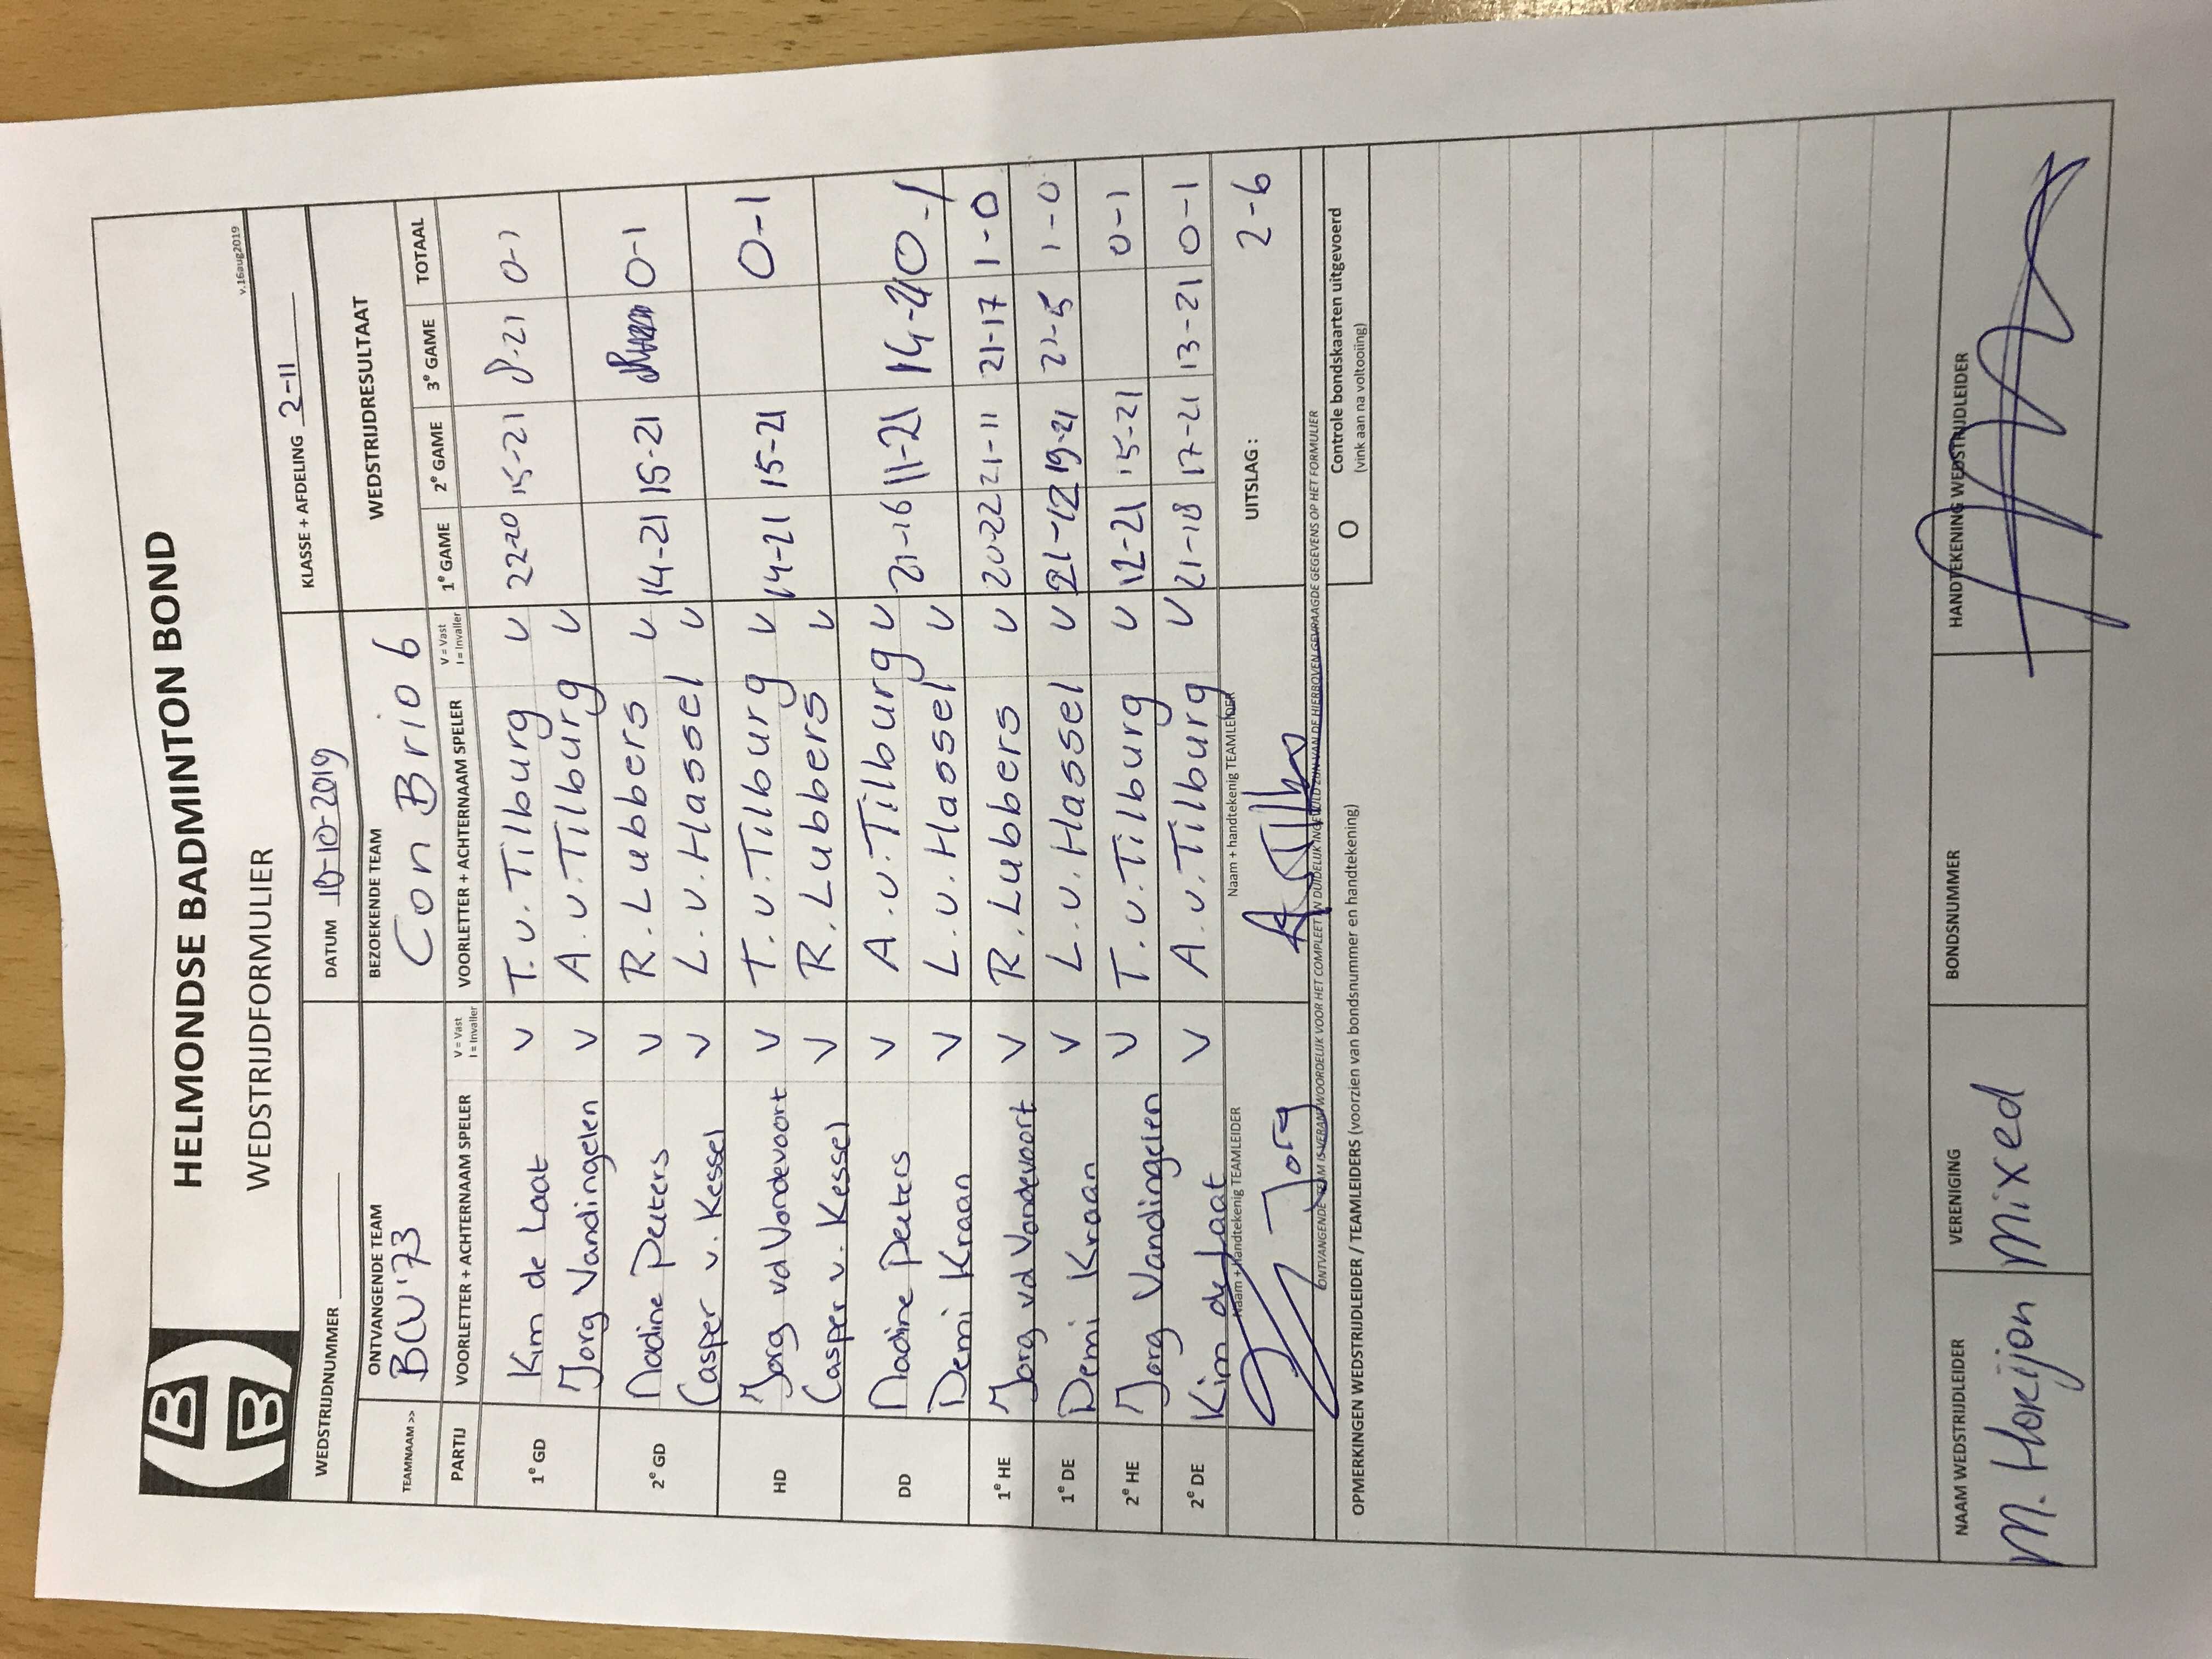 HELMONDSE BADMINTON BOND
WEDSTRIJDFORMULIER
v.16aug2019
WEDSTRIJDNUMMER DATUM 10-10-2019 KLASSE + AFDELING 2-11
TEAMNAAM >> ONTVANGENDE TEAM BEZOEKENDE TEAM WEDSTRIJDRESULTAAT
BCV'73 Con Brio 6
PARTIJ VOORLETTER + ACHTERNAAM SPELER V = Vast I = Invaller VOORLETTER + ACHTERNAAM SPELER V = Vast I = Invaller 1e GAME 2e GAME 3e GAME TOTAAL
1e GD Kim de Laat V T. v. Tilburg V 22-20 15-21 8-21 0-1
Jorg Vandingelen V A. v. Tilburg V
2e GD Nadine Peeters V R. Lubbers V 14-21 15-21 0-1
Casper v. Kessel V L. v. Hassel V
HD Jorg vd Vondevoort V T. v. Tilburg V 14-21 15-21 0-1
Casper v. Kessel V R. Lubbers V
DD Nadine Peeters V A. v. Tilburg V 21-16 11-21 14-21 0-1
Demi Kraan V L. v. Hassel V
1e HE Jorg vd Vondevoort V R. Lubbers V 20-22 21-11 21-17 1-0
1e DE Demi Kraan V L. v. Hassel V 21-12 19-21 21-5 1-0
2e HE Jorg Vandingelen V T. v. Tilburg V 12-21 15-21 0-1
2e DE Kim de Laat V A. v. Tilburg V 21-18 17-21 13-21 0-1
Naam + handtekenig TEAMLEIDER Naam + handtekenig TEAMLEIDER UITSLAG: 2-6
Jorg
ONTVANGENDE TEAM IS VERANTWOORDELIJK VOOR HET COMPLEET EN DUIDELIJK INGEVULD ZIJN VAN DE HIERBOVEN GEVRAAGDE GEGEVENS OP HET FORMULIER
OPMERKINGEN WEDSTRIJDLEIDER / TEAMLEIDERS (voorzien van bondsnummer en handtekening) O Controle bondskaarten uitgevoerd
(vink aan na voltooiing)
NAAM WEDSTRIJDLEIDER VERENIGING BONDSNUMMER HANDTEKENING WEDSTRIJDLEIDER
M. Horeijon Mixed